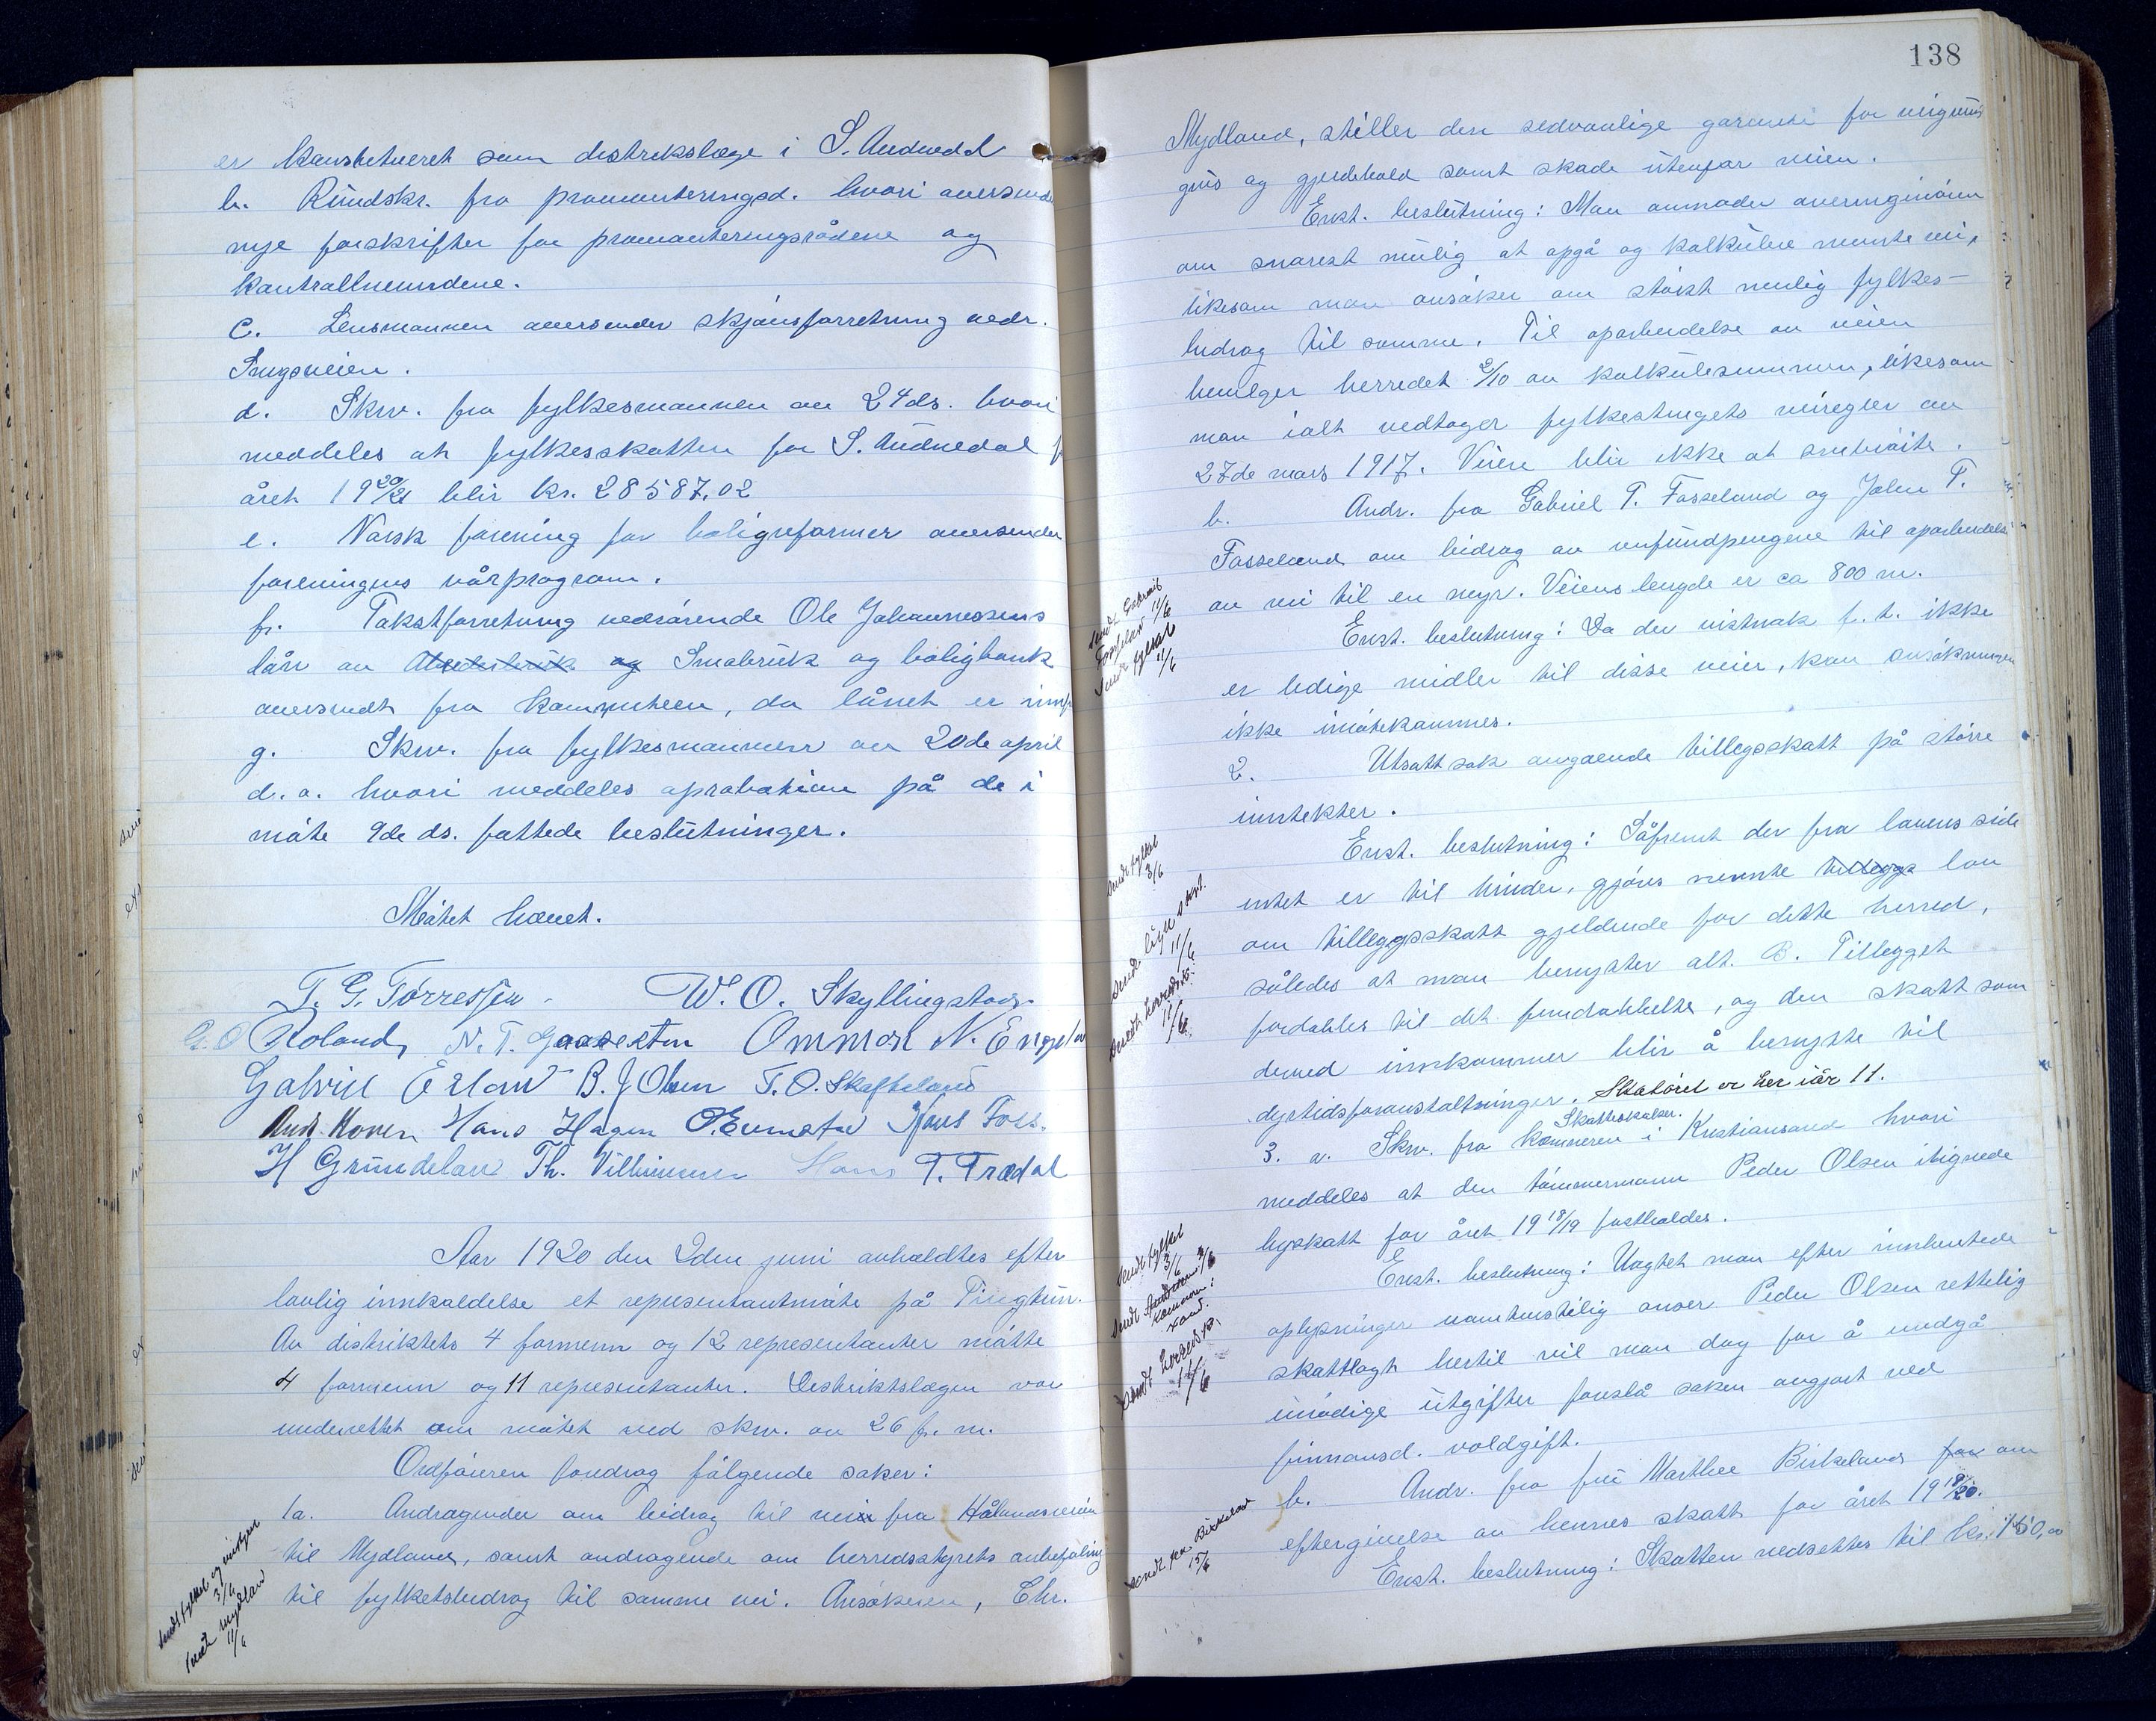 er konstitueret som distrikslæge i S. Audnedal
b. Rundskr. fra provianteringsd. hvori oversendes
nye forskrifter for provianteringsrådene og
kontrollnemndene.
c. Lensmannen oversender skjønsforretning vedr.
d. Skriv. fra fylkesmannen av 24 ds. hvori
meddeles at fylkesskatten for S. Audnedal f
året 1920/21 blir kr. 28587.02
e. Norsk forening for boligreformer oversender
foreningens vårprogram.
f. Takstforretning vedrørende Ole Johannessens
lån av Arbeiderbruk og Småbruk og boligbank
oversendt fra kommiteen, da lånet er innfr
g. Skriv. fra fylkesmannen av 20de april
d. a. hvori meddeles aprobation på de i
møte 9de ds. fattede beslutninger.
Møtet hævet.
T. G. Tørressen W. O. Skyllingstad
G. O Roland N. T. Ommon N. Engeland
Gabriel B. J Olsen T. O. Skofteland
And. Hans Hagen Foss.
H Grundeland Th. Vilhimmer Hans T. Trædal
Aar 1920 den 2den juni avholdtes efter
lovlig innkaldelse et representantmøte på Tingtun.
Av distriktets 4 formenn og 12 representanter møtte
4 formenn og 11 representanter. Distriktslægen var
underrettet om møtet ved skriv. av 26 f. m.
Ordføreren foredrog følgende saker:
1a. Andragender om bidrag til vei fra Hålandsveien
til Mydland, samt andragende om herredsstyrets anbefaling
til fylketsbidrag til samme vei. Ansøkeren, Chr.
Sendt fylket og
3/6
sendt Mydland
11/6
138
Mydland, stiller den sedvanlige garanti for veigrund
grus og gjerdehold samt skade utenfor veien.
Enst. beslutning: Man anmoder overingeniøren
om snarest mulig at opgå og kalkulere nevnte vei,
likesom man ansøker om størst mulig fylkes-
bidrag til samme. Til oparbeidelse av veien
bevilger herredet 2/10 av kalkulesummen, likesom
man ialt vedtager fylkestingets veiregler av
27de mars 1917. Veien blir ikke at snebrøite.
b. Andr. fra Gabriel T. Fasseland og John T.
Fasseland om bidrag av veifundpengene til oparbeidelse
av vei til en myr. Veiens lengde er ca 800 m.
Enst. beslutning: Da der vistnok f. t. ikke
er ledige midler til disse veier, kan ansøkningen
ikke imøtekommes.
2. Utsatt sak angaaende tillegsskatt på større
inntekter.
Enst. beslutning: Såfremt der fra lovens side
intet er til hinder, gjøres nevnte tillegg lov
om tilleggsskatt gjeldende for dette herred,
således at man benytter alt. B. Tillegget
fordobles til det firedobbelte, og den skatt som
derved innkommer blir å benytte til
dyrtidsforanstaltninger. Skatøret er her iår 11.
Skatteskalaer.
3. a. Skriv. fra kæmneren i Kristiansand hvori
meddeles at den tømmermann Peder Olsen ilignede
byskatt for året 1918/19 fastholdes.
Enst. beslutning: Uagtet man efter innhentede
oplysninger uomtvistelig anser Peder Olsen rettelig
skattlagt hertil vil man dog for å undgå
unødige utgifter foreslå saken avgjort ved
finnansd. voldgift.
b. Andr. fra fru Marthee Birkeland for om
eftergivelse av hennes skatt for året 1919/20.
Enst. beslutning: Skatten nedsettes til kr. 150,00
Sendt Gabriel
11/6
Sendt fylket
11/6
Sendt fylket
3/6
Sendt
11/6
Sendt herredsk.
11/6
Sendt fylket
3/6
Sendt
Sendt herredsk.
11/6
Sendt fru Birkeland
15/6